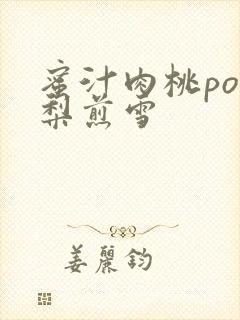 蜜汁肉桃po
梨煎雪
姜丽钧